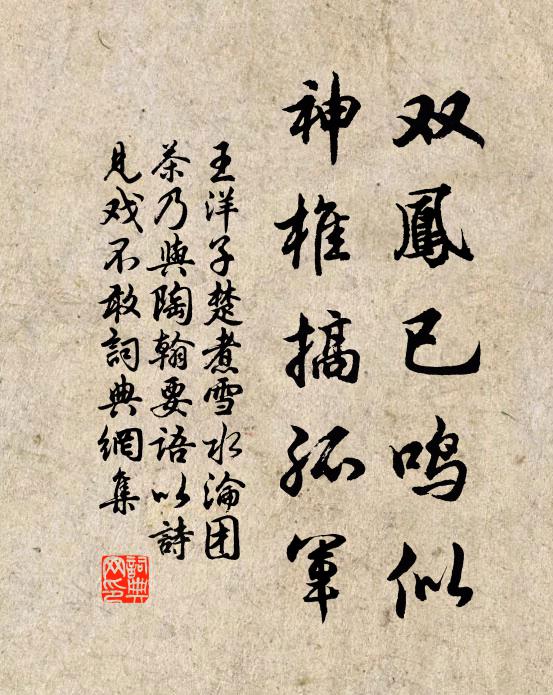 双鳳已鸣似
神椎搞孤军
王洋子楚煮雪水淪团
茶乃與陶翰要语以詩
見戏不敢詞典網集
詞典网印